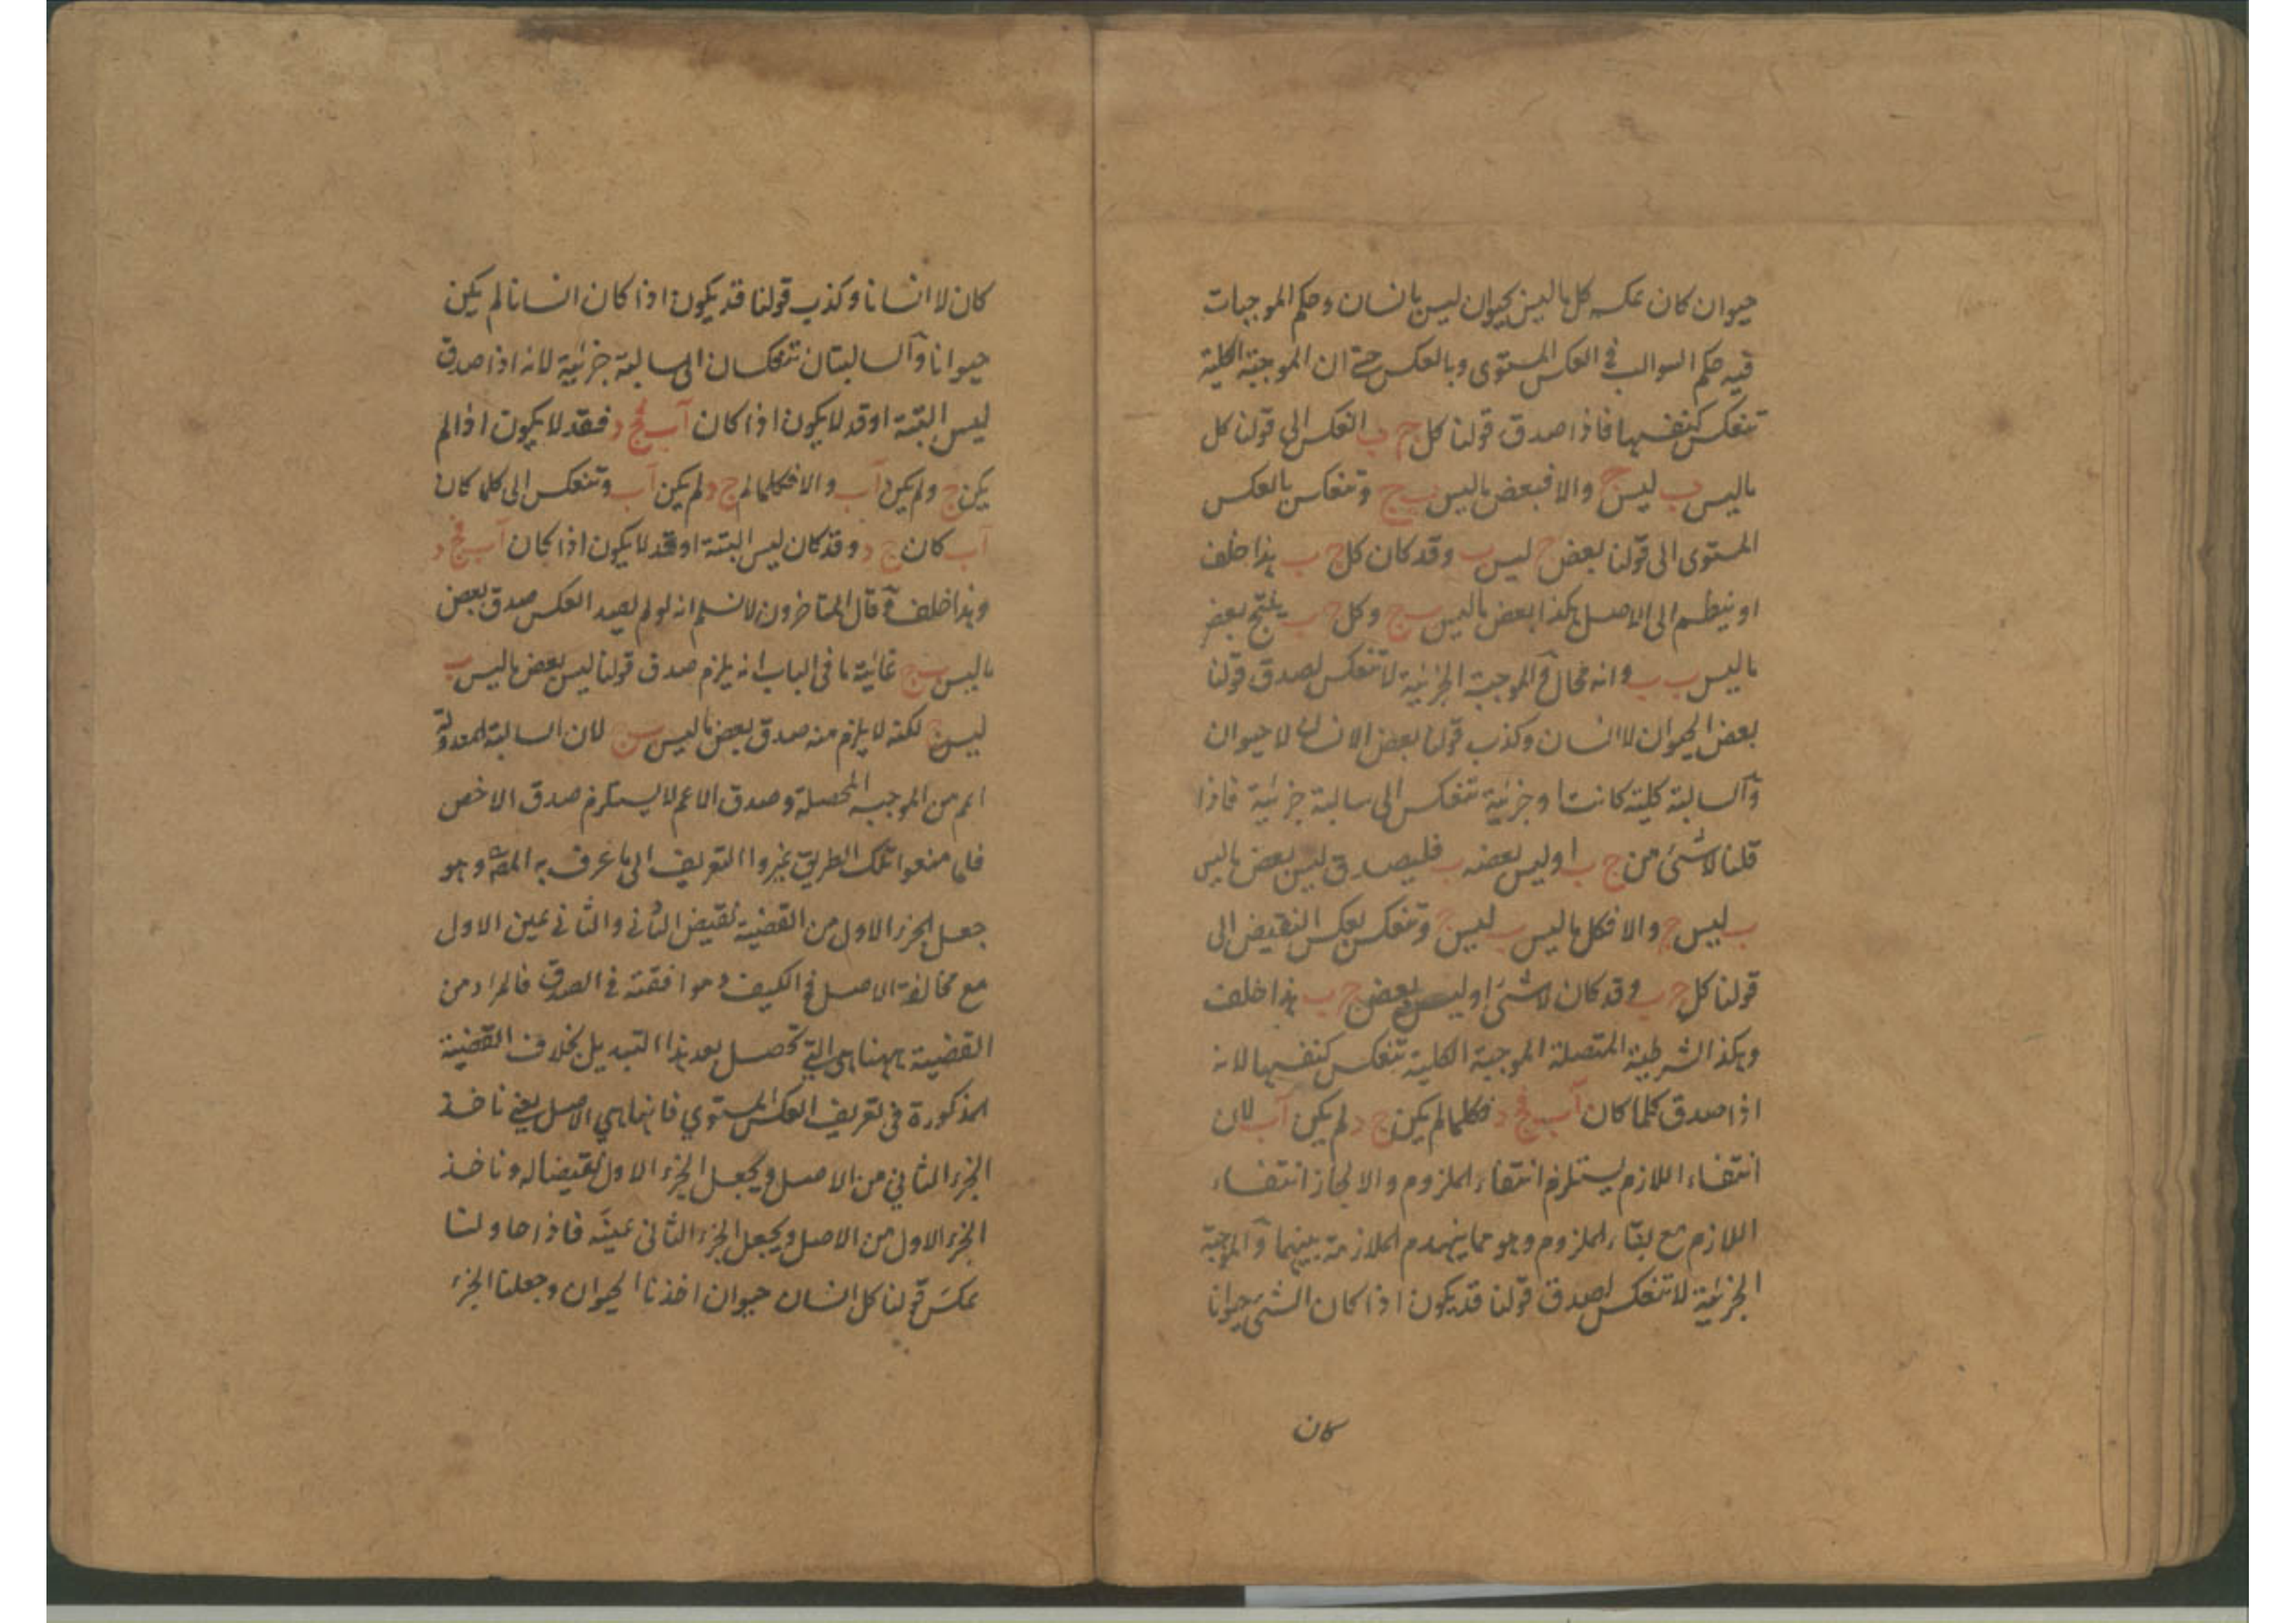 حيوان كان عكسه كل ما ليس بحيوان ليس بانسان وحكم الموجبات
فيه حكم السوالب فى العكس المستوى وبالعكس حتى ان الموجبة الكلية
تنعكس كنفسها فاذا صدق قولنا كل ج ب انعكس الى قولنا كل
ما ليس ب ليس ج والا فبعض ما ليس ب ج وتنعكس بالعكس
المستوى الى قولنا بعض ج ليس ب وقد كان كل ج ب هذا خلف
او ينظم الى الاصل هكذا بعض ما ليس ب ج وكل ج ب ينتج بعض
ما ليس ب ب وانه محال والموجبة الجزئية لا تنعكس لصدق قولنا
بعض الحيوان لا انسان وكذب قولنا بعض الانسان لا حيوان
والسالبة كلية كانت او جزئية تنعكس الى سالبة جزئية فاذا
قلنا لا شئ من ج ب او ليس بعضه ب فليصدق ليس بعض ما ليس
ب ليس ج والا فكل ما ليس ب ليس ج وتنعكس بعكس النقيض الى
قولنا كل ج ب وقد كان لا شئ او ليس بعض ج ب هذا خلف
وهكذا الشرطية المتصلة الموجبة الكلية تنعكس كنفسها لانه
اذا صدق كلما كان آب فج د فكلما لم يكن ج د لم يكن آب لان
انتفاء اللازم يستلزم انتفاء الملزوم والا لجاز انتفاء
اللازم مع بقاء الملزوم وهو مما ينهدم الملازمة بينهما والموجبة
الجزئية لا تنعكس لصدق قولنا قد يكون اذا كان الشئ حيوانا
كان
كان لا انسانا وكذب قولنا قد يكون اذا كان انسانا لم يكن
حيوانا والسالبتان تنعكسان الى سالبة جزئية لانه اذا صدق
ليس البتة او قد لا يكون اذا كان آب فج د فقد لا يكون اذا لم
يكن ج د لم يكن آب والا فكلما لم ج د لم يكن آب وتنعكس الى كلما كان
آب كان ج د وقد كان ليس البتة او قد لا يكون اذا كان آب فج د
وهذا خلف وقال المتاخرون لا نسلم انه لو لم يصد العكس صدق بعض
ما ليس ب ج غاية ما فى الباب انه يلزم صدق قولنا ليس بعض ما ليس ب
ليس ج لكنه لا يلزم منه صدق بعض ما ليس ب ج لان السالبة المعدولة
اعم من الموجبه المحصلة وصدق الاعم لا يستلزم صدق الاخص
فلما منعوا تلك الطريق غيروا التعريف الى ما عرف به المصّ وهو
جعل الجزء الاول من القضية نقيض الثانى والثانى عين الاول
مع مخالفة الاصل فى الكيف وموافقته فى الصدق فالمراد من
القضية ههنا هى التى تحصل بعد هذا التبديل بخلاف القضية
المذكورة فى تعريف العكس المستوي فانها هي الاصل يعنى ناخذ
الجزء الثاني من الاصل ويجعل الجزء الاول نقيضا له وناخذ
الجزء الاول من الاصل ويجعل الجزء الثانى عينه فاذا حاولنا
عكس قولنا كل انسان حيوان اخذنا الحيوان وجعلنا الجزء